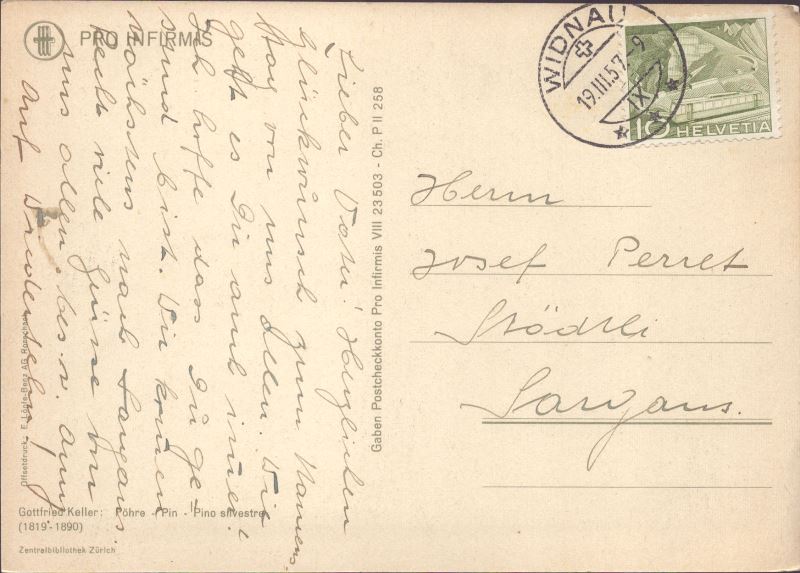 PRO INFIRMIS
WIDNAU
19.III.57. 9
IX
10 HELVETIA
Lieber Vater! Herzlichen
Glückwunsch zum Namens-
tag von uns Allen. Wie
geht es Dir auch immer!
Ich hoffe das Du ge-
sund bist. Wir kommen
nächstens nach Sargans.
Recht viele Grüsse von
uns allen, bes. v. Anny
Auf Wiedersehn!
Gaben Postcheckkonto Pro Infirmis VIII 23 503 - Ch. P II 258
Herrn
Josef Perret
Städtli
Sargans.
Offsetdruck: E. Löpfe-Benz AG Rorschach
Gottfried Keller: Föhre - Pin - Pino silvestre
(1819-1890)
Zentralbibliothek Zürich